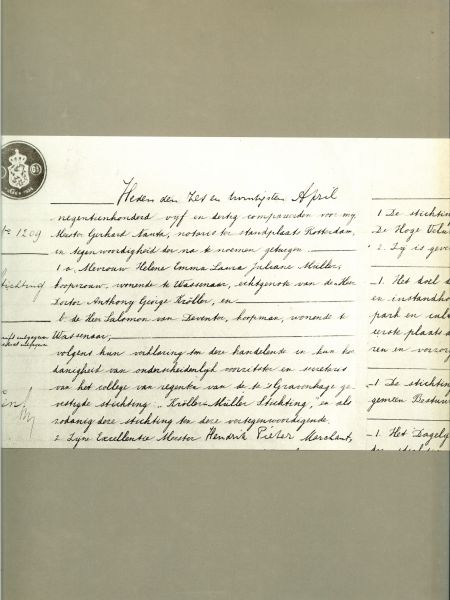 No 1209
Heden den zes en twintigsten April
negentienhonderd vijf en dertig compareerden voor mij,
Meester Gerhard Nauta, notaris ter standplaats Rotterdam,
in tegenwoordigheid der na te noemen getuigen:
1 a. Mevrouw Helene Emma Laura Juliane Müller,
koopvrouw, wonende te Wassenaar, echtgenote van de Heer
Doctor Anthony George Kröller, en
b. de Heer Salomon van Deventer, koopman, wonende te
Wassenaar;
volgens hun verklaring ten deze handelende in hun hoe-
danigheid van onderscheidenlijk voorzitster en secretaris
van het college van regenten van de te 's Gravenhage ge-
vestigde stichting "Kröller-Müller Stichting," en als
zodanig deze stichting ten deze vertegenwoordigende.
2. Zijne Excellentie Meester Hendrik Pieter Marchant,
1 De stichtin
De Hoge Velu
2. Zij is geve
1. Het doel d
en instandho
park en
eerste plaats d
ren en verzor
1 De stichtin
gemeen Bestuur
1. Het Dagelij